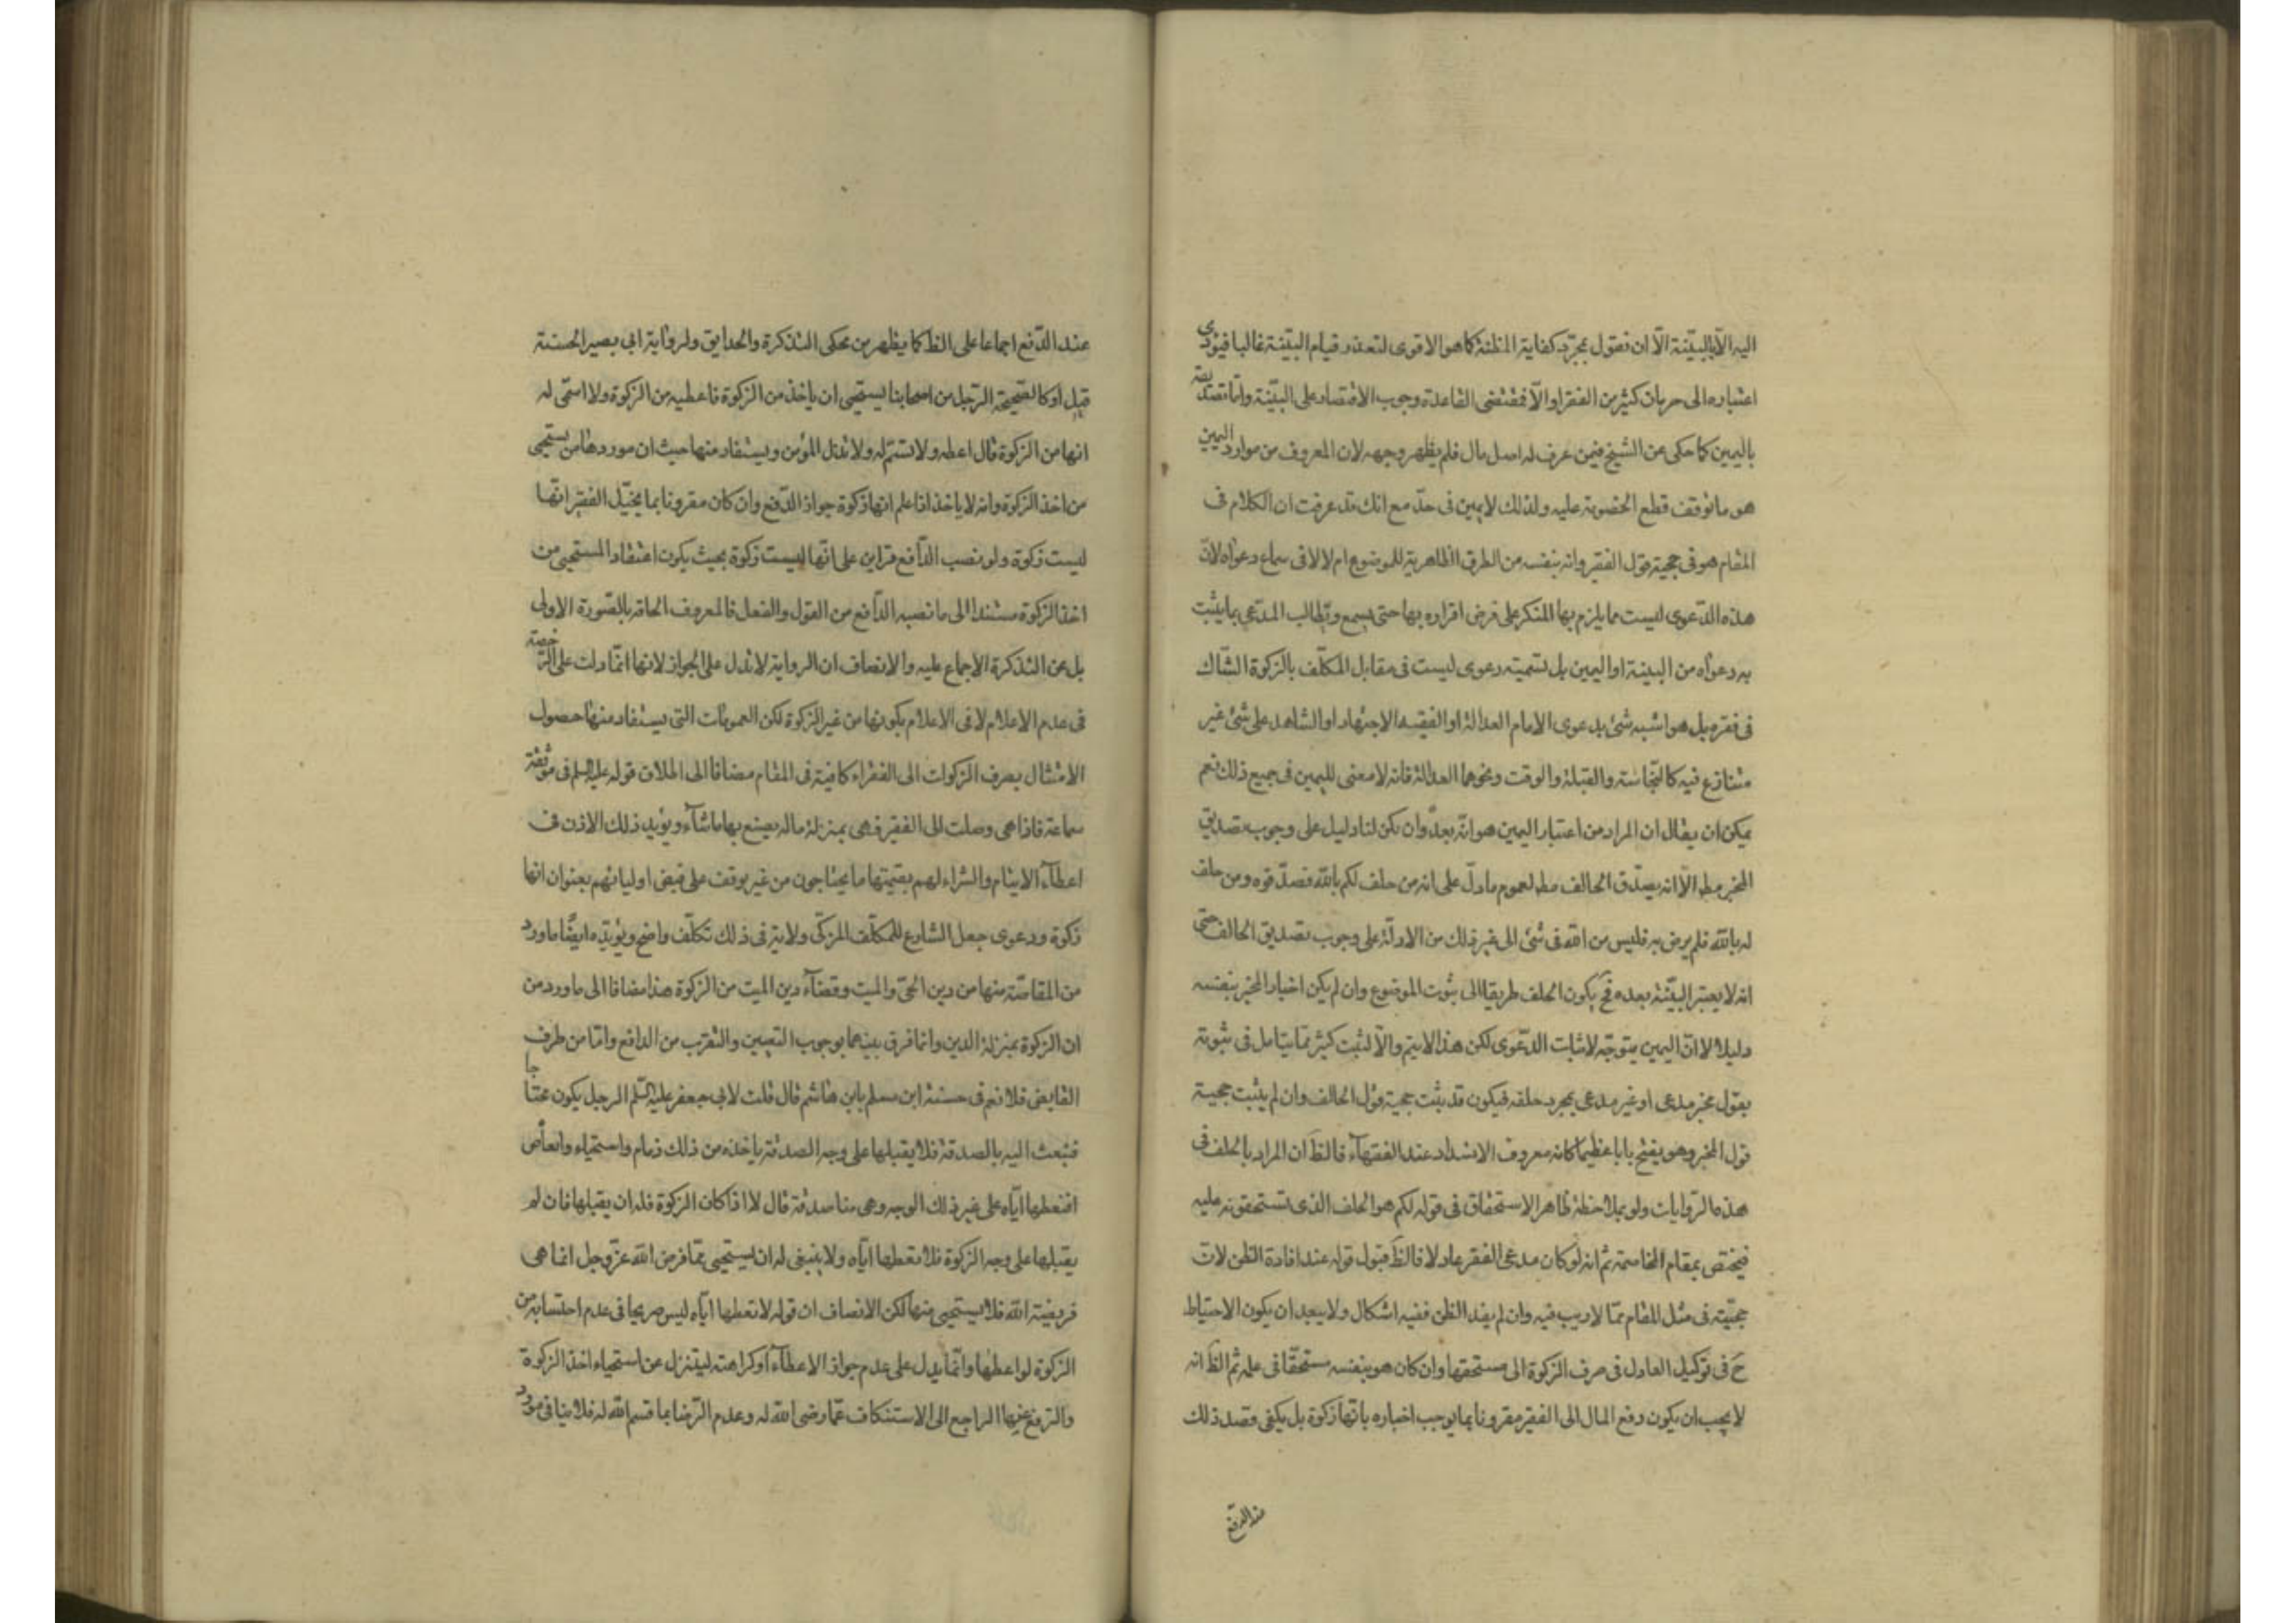 اليه الّا بالبيّنة الّا ان نقول بمجرّد كفاية المظنّة كما هو الاقوى لتعذر قيام البيّنة غالبا فيؤدى
اعتباره الى حرمان كثير من الفقراء والّا فمقتضى القاعدة وجوب الاقتصاد على البيّنة وامّا تصديقه
باليمين كما حكى عن الشيخ فيمن عرف له اصل مال فلم يظهر وجهه لان المعروف من موارد اليمين
هو ما توقف قطع الخصومة عليه ولذلك لا يمين فى حدّ مع انك قد عرفت ان الكلام فى
المقام هو فى حجية قول الفقير وانه بنفسه من الطرق الظاهرية للموضوع ام لا لا فى سماع دعواه لانّ
هذه الدّعوى ليست مما يلزم بها المنكر على فرض اقراره بها حتى يسمع ويطالب المدّعى بما يثبت
به دعواه من البينة او اليمين بل تسميته دعوى ليست فى مقابل المكلّف بالزكوة الشّاك
فى فقره بل هو اشبه شئ بدعوى الامام العدالة او الفقيه الاجتهاد او الشاهد على شئ غير
متنازع فيه كالنّجاسة والقبلة والوقت ونحوهما العدالة فانه لا معنى لليمين فى جميع ذلك نعم
يمكن ان يقال ان المراد من اعتبار اليمين هو انّه بعد وان يكن لنا دليل على وجوب تصديق
المخبر مط الّا انه يصدّق الحالف مط لعموم ما دلّ على انه من حلف لكم بالله فصدّقوه ومن حلف
له بالله فلم يرض به فليس من الله فى شئ الى غير ذلك من الادلّة على وجوب تصديق الحالف حتى
انه لا يعتبر البيّنة بعده فح يكون الحلف طريقا الى ثبوت الموضوع وان لم يكن اخبار المخبر بنفسه
دليلا لا انّ اليمين يتوجّه لاثبات الدّعوى لكن هذا لا يتم والّا لثبت كثير ممّا يتامل فى ثبوته
بقول مخبر مدعى او غير مدعى بمجرد حلفه فيكون قد يثبت حجية قول الحالف وان لم يثبت حجية
قول المخبر وهو يفتح بابا عظيما كانه معروف الانسداد عند الفقهآء فالظ ان المراد بالحلف فى
هذه الرّوايات ولو بملاحظة ظاهر الاستحقاق فى قوله لكم هو الحلف الذى تستحقونه عليه
فيختص بمقام المخاصمة ثم انه لو كان مدعى الفقر عادلا فالظ قبول قوله عند افادة الظن لانّ
حجيّته فى مثل المقام ممّا لا ريب فيه وان لم يفد الظن ففيه اشكال ولا يبعد ان يكون الاحتياط
ح فى توكيل العادل فى صرف الزكوة الى مستحقها وان كان هو بنفسه مستحقّا فى علمه ثم الظ انه
لا يجب ان يكون دفع المال الى الفقير مقرونا بما يوجب اخباره بانّها زكوة بل يكفى قصد ذلك
عند الدّفع
عند الدّفع اجماعا على الظ كما يظهر من محكى التذكرة والحدايق ولرواية ابى بصير الحسنة
قبل او كالصّحيحة الرّجل من اصحابنا يستحيى ان ياخذ من الزكوة فاعطيه من الزكوة ولا اسمّى له
انها من الزكوة قال اعطه ولا تسمّ له ولا تذل المؤمن ويستفاد منها حيث ان موردها من يستحيى
من اخذ الزكوة وانه لا ياخذ اذا علم انها زكوة جواز الدّفع وان كان مقرونا بما يخيّل الفقير انّها
ليست زكوة ولو نصب الدّافع قراين على انّها ليست زكوة بحيث يكون اعتقاد المستحيى من
اخذ الزكوة مستندا الى ما نصبه الدّافع من القول والفعل فالمعروف الحاقه بالصّورة الاولى
بل عن التذكرة الاجماع عليه والانصاف ان الرواية لا تدل على الجواز لانها انّما دلت على الرّخصة
فى عدم الاعلام لا فى الاعلام بكونها من غير الزكوة لكن العمومات التى يستفاد منها حصول
الامتثال بصرف الزكوات الى الفقراء كافية فى المقام مضافا الى اطلاق قوله عليه السلم فى موثقة
سماعة فاذا هى وصلت الى الفقير فهى بمنزلة ماله يصنع بها ما شآء ويؤيد ذلك الاذن فى
اعطآء الايتام والشراء لهم بقيمتها ما يحتاجون من غير توقف على قبض اوليائهم بعنوان انها
زكوة ودعوى جعل الشارع للمكلّف المزكّى ولاية فى ذلك تكلّف واضح ويؤيّده ايضًا ما ورد
من المقاصّة منها من دين الحىّ والميت وقضآء دين الميت من الزكوة هذا مضافا الى ما ورد من
ان الزكوة بمنزلة الدين وانما فرق بينهما بوجوب التعيين والتقرّب من الدافع وامّا من طرف
القابض فلا نعم فى حسنة ابن مسلم بابن هاشم قال قلت لابى جعفر عليه السّلم الرجل يكون محتاجا
فنبعث اليه بالصدقة فلا يقبلها على وجه الصدقة ياخذه من ذلك ذمام واستحياء وانقباض
افنعطها ايّاه على غير ذلك الوجه وهى منا صدقة قال لا اذا كان الزكوة فله ان يقبلها فان لم
يقبلها على وجه الزكوة فلا تعطها ايّاه ولا ينبغى له ان يستحيى ممّا فرض الله عزّ وجل انما هى
فريضة الله فلا يستحيى منها لكن الانصاف ان قوله لا تعطها ايّاه ليس صريحا فى عدم احتسابه من
الزكوة لو اعطها وانّما يدل على عدم جواز الاعطآء او كراهته ليتنزل عن استحياء اخذ الزكوة
والترفع عنها الراجع الى الاستنكاف عمّا رضى الله له وعدم الرّضا بما قسم الله له فلا ينافى مورد